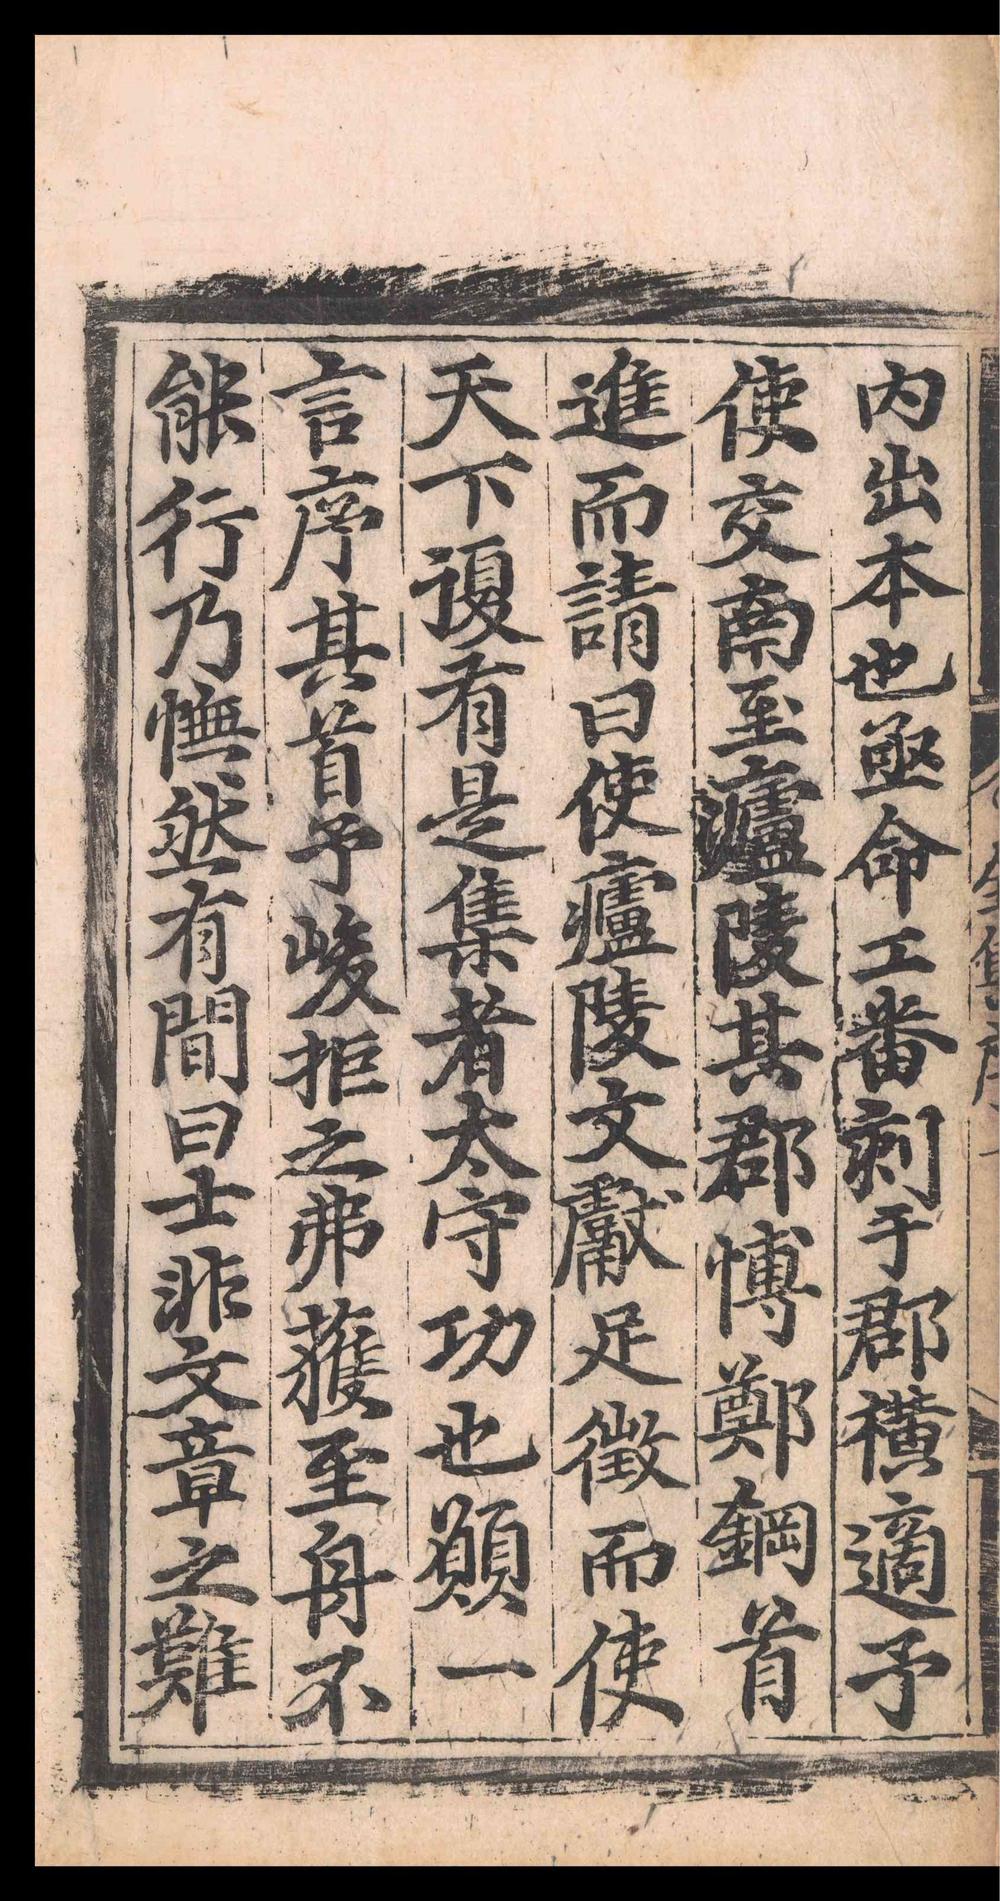 內出本也亟命工番刻于郡横適予
使交南至瀘陵其郡博鄭鋼首
進而請曰使瀘陵文獻足徵而使
天下復有是集者太守功也願一
言序其首予峻拒之弗獲至舟不
能行乃憮然有間曰士非文章之難